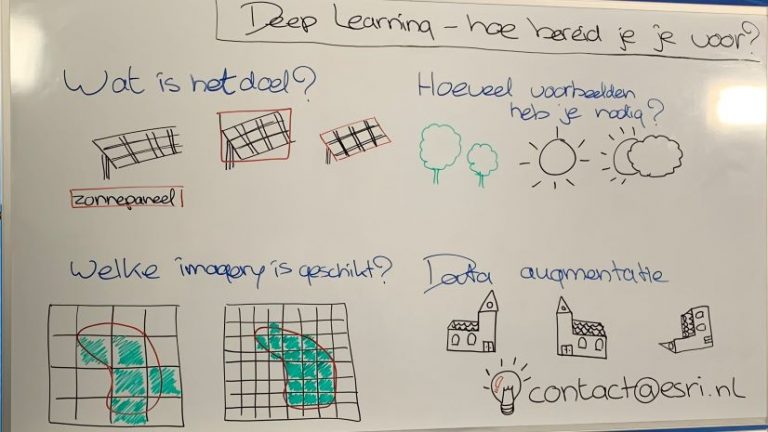 Deep Learning - hoe bereid je je voor?
Wat is het doel?
zonnepaneel
Hoeveel voorbeelden
heb je nodig?
Welke imagery is geschikt?
Data augmentatie
contact@esri.nl